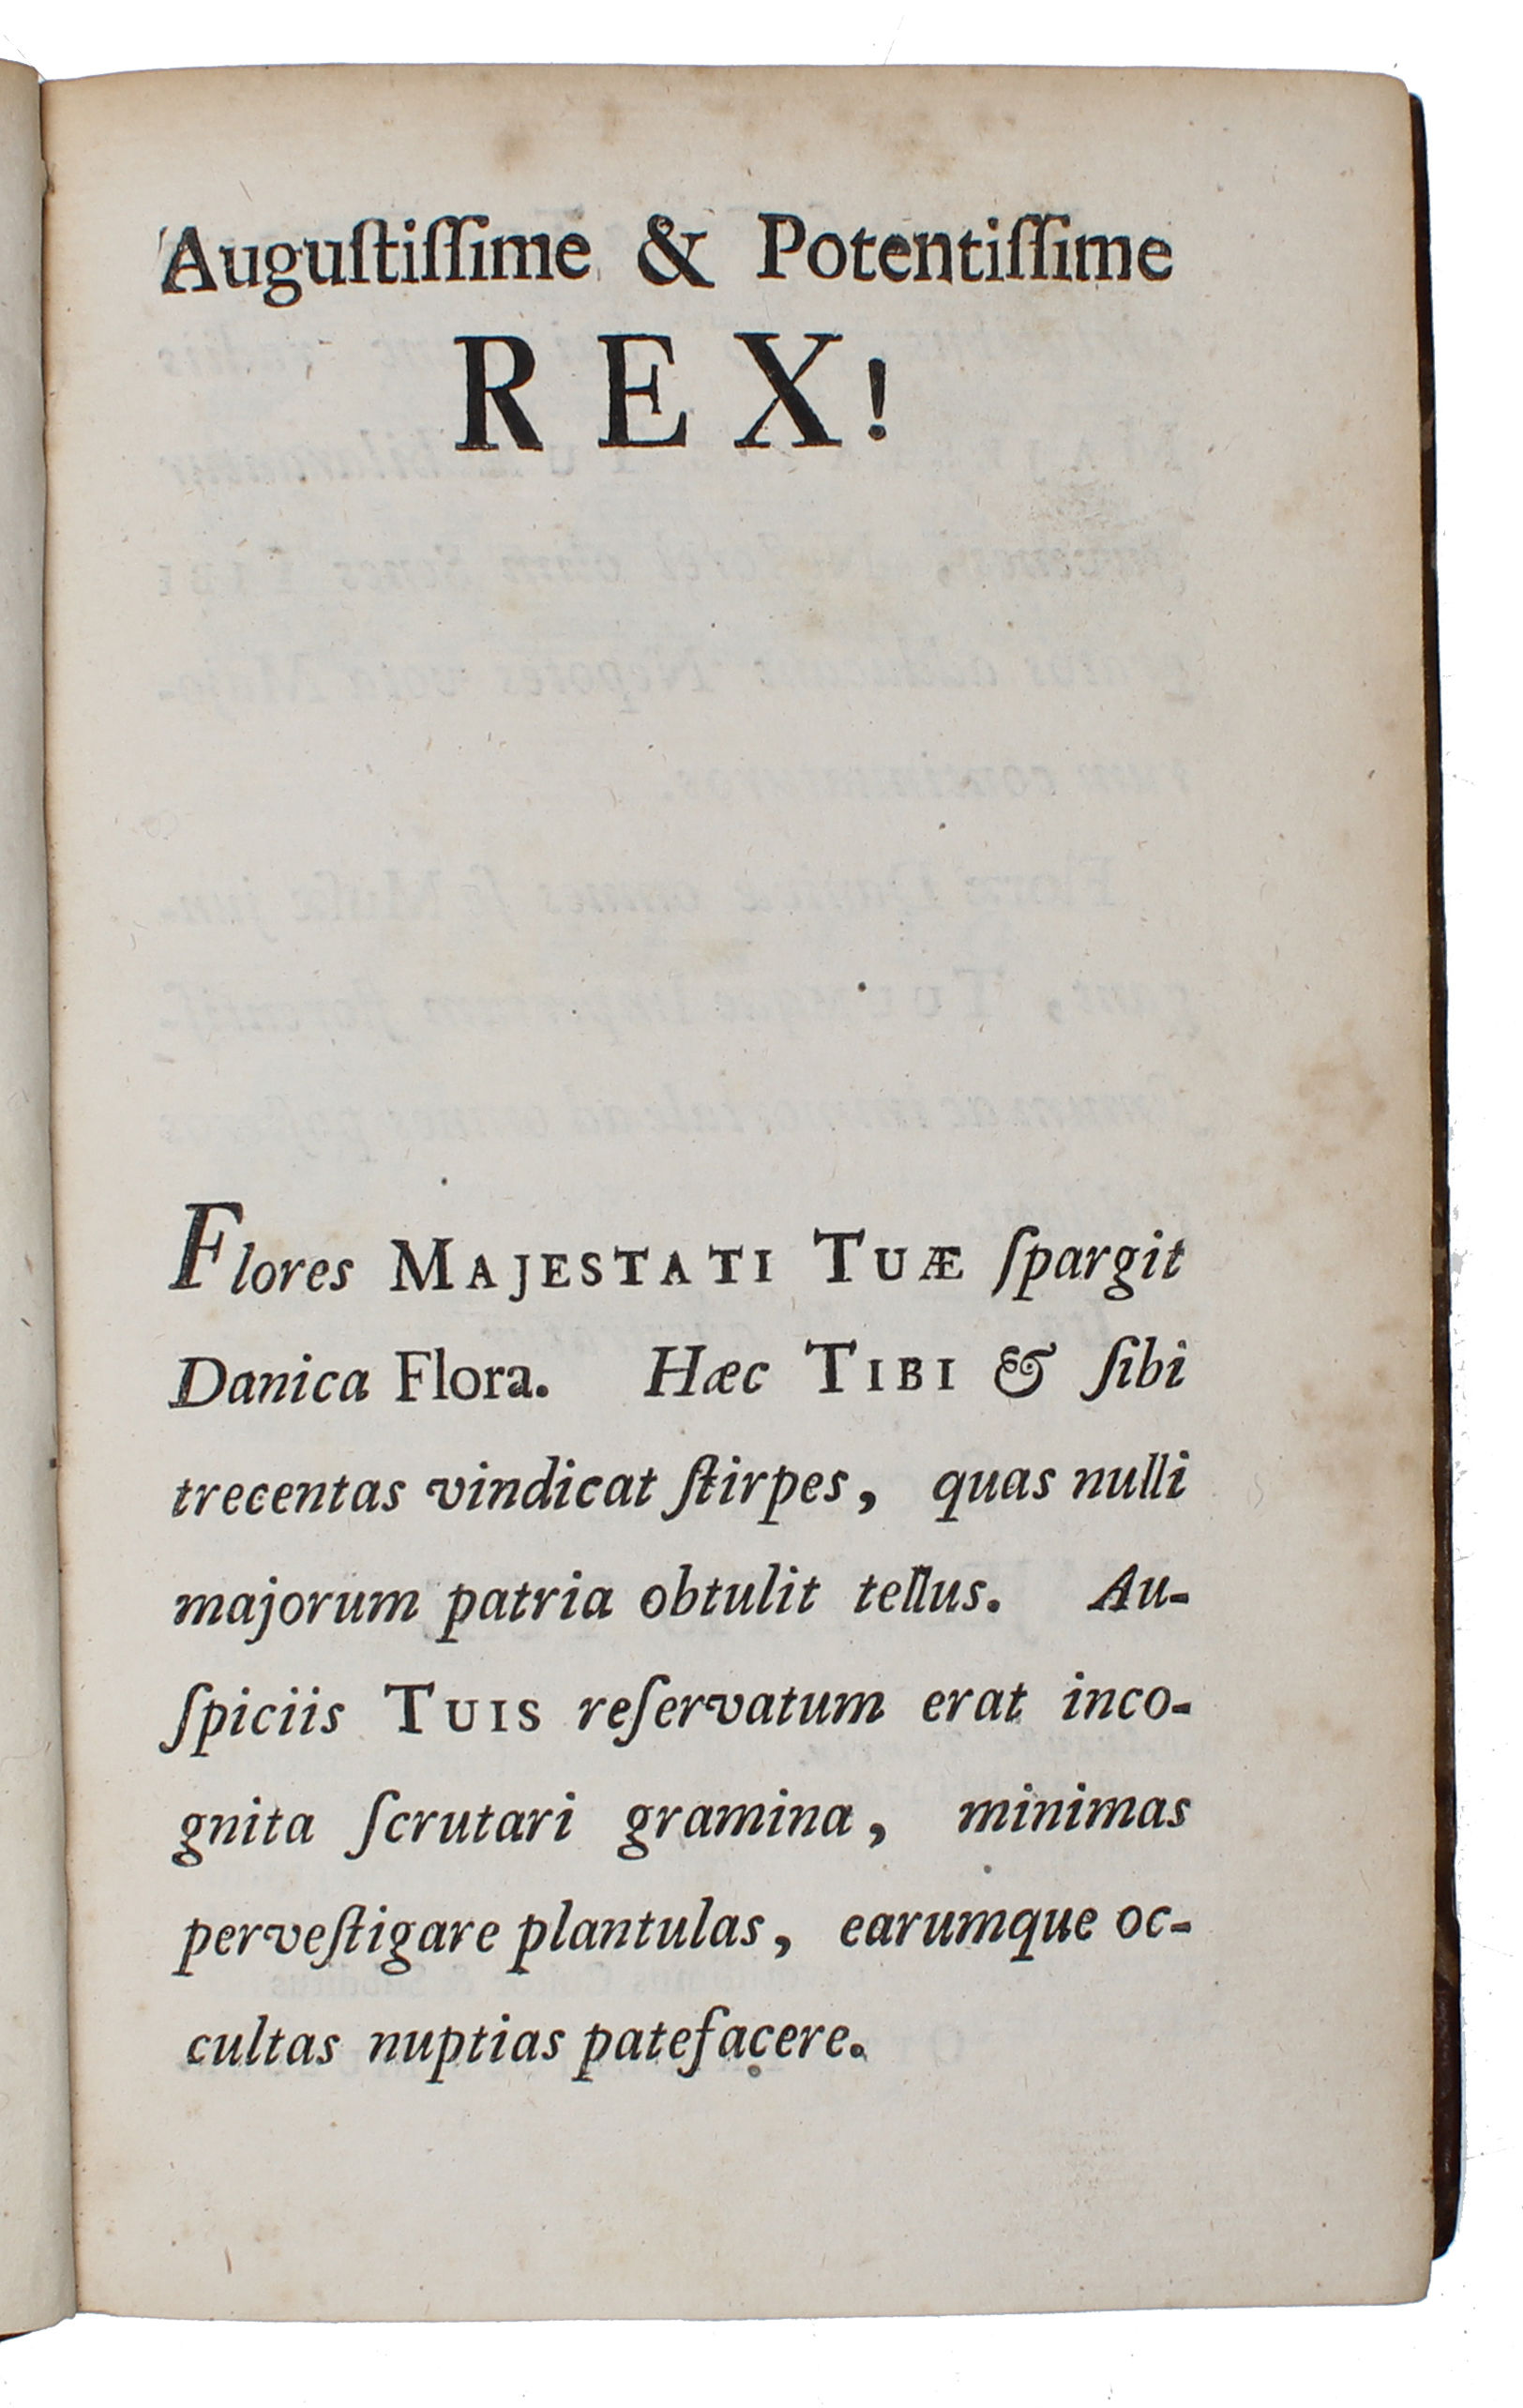 Auguſtiſſime & Potentiſſime
REX!
Flores MAJESTATI TUÆ ſpargit
Danica Flora. Hæc TIBI & ſibi
trecentas vindicat ſtirpes, quas nulli
majorum patria obtulit tellus. Au-
ſpiciis TUIS reſervatum erat inco-
gnita ſcrutari gramina, minimas
perveſtigare plantulas, earumque oc-
cultas nuptias patefacere.